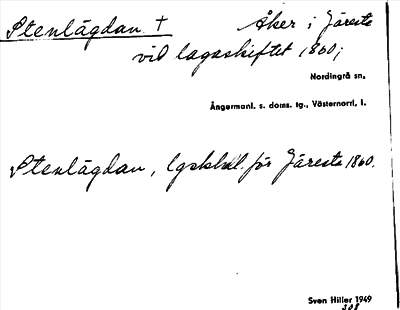 Stenlägdan † Åker i Järesta
vid lagaskiftet 1860;
Nordingrå sn.
Ångermanl. s. doms. tg., Västernorrl. l.
Stenlägdan, lgskhl. för Järesta 1860.
Sven Hiller 1949
308